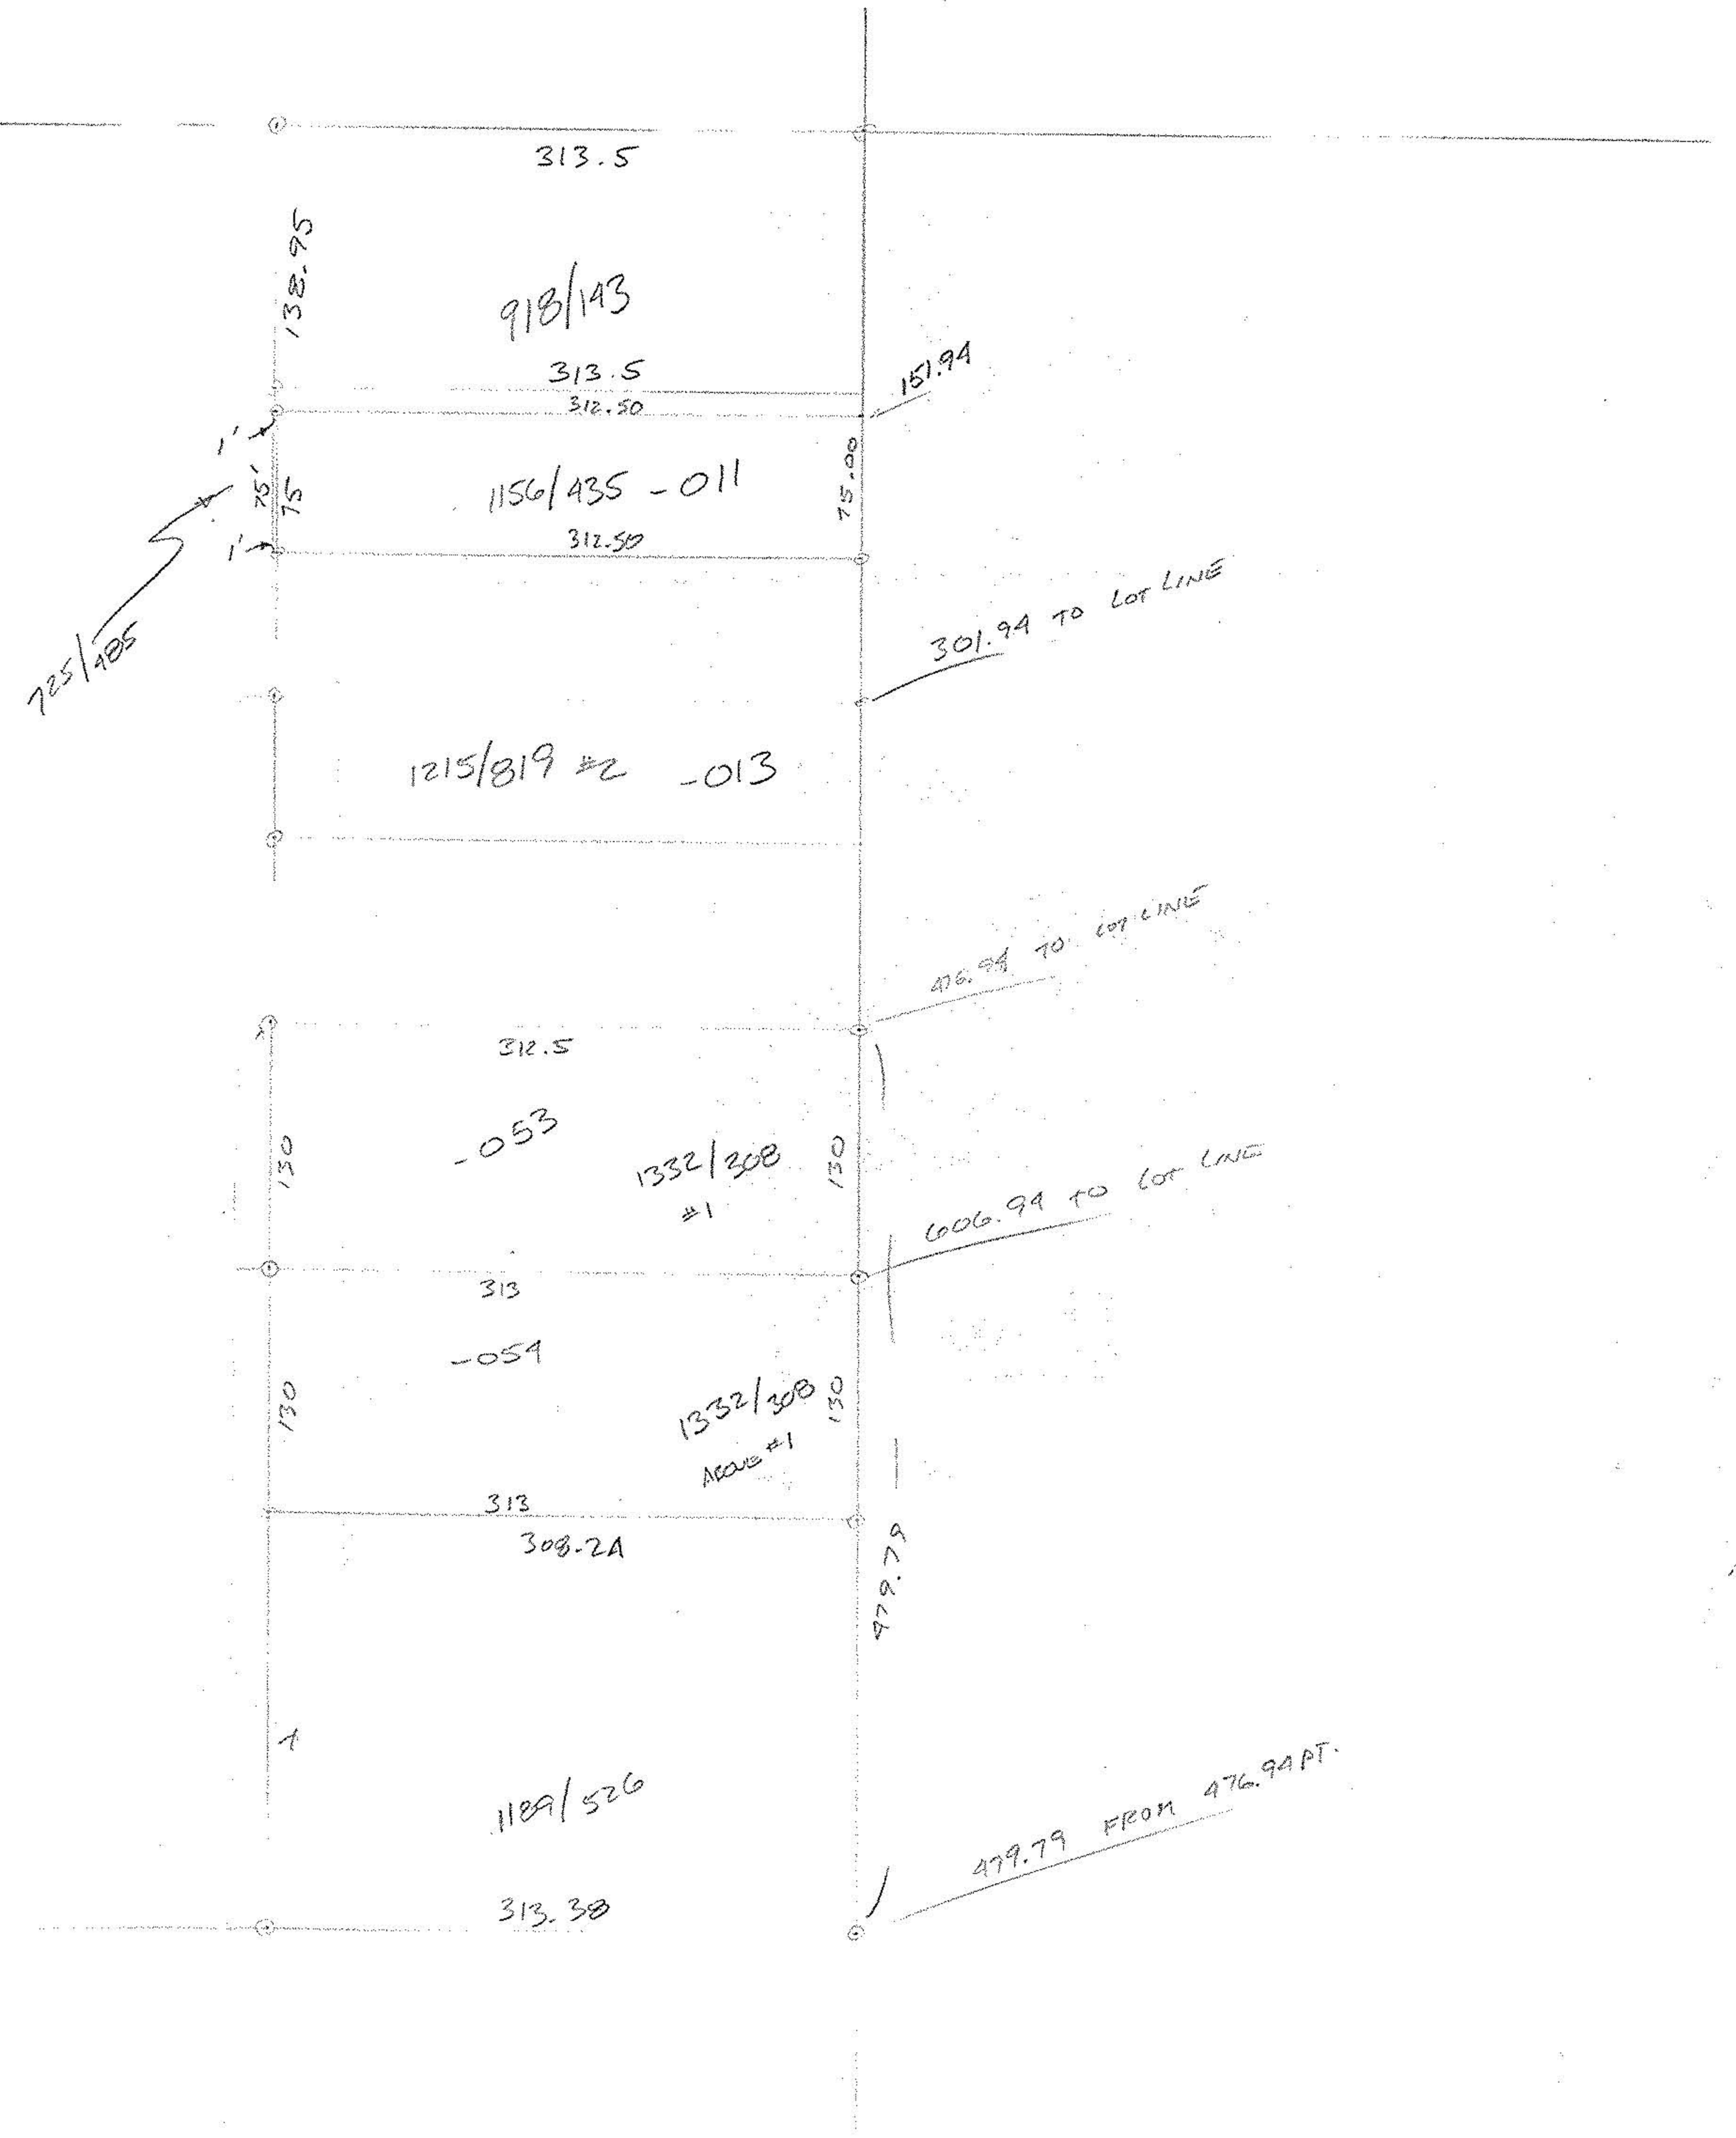 313.5
138.95
918/143
313.5
151.94
312.50
1'
75'
75
1156/435 - 011
75.00
1'
312.50
725/485
301.94 TO LOT LINE
1215/819 #2 -013
476.94 TO LOT LINE
312.5
- 053
130
1332/308
#1
130
606.94 TO LOT LINE
313
-054
130
1332/308
ABOVE #1
130
313
308.24
479.79
1189/526
479.79 FROM 476.94 PT.
313.38